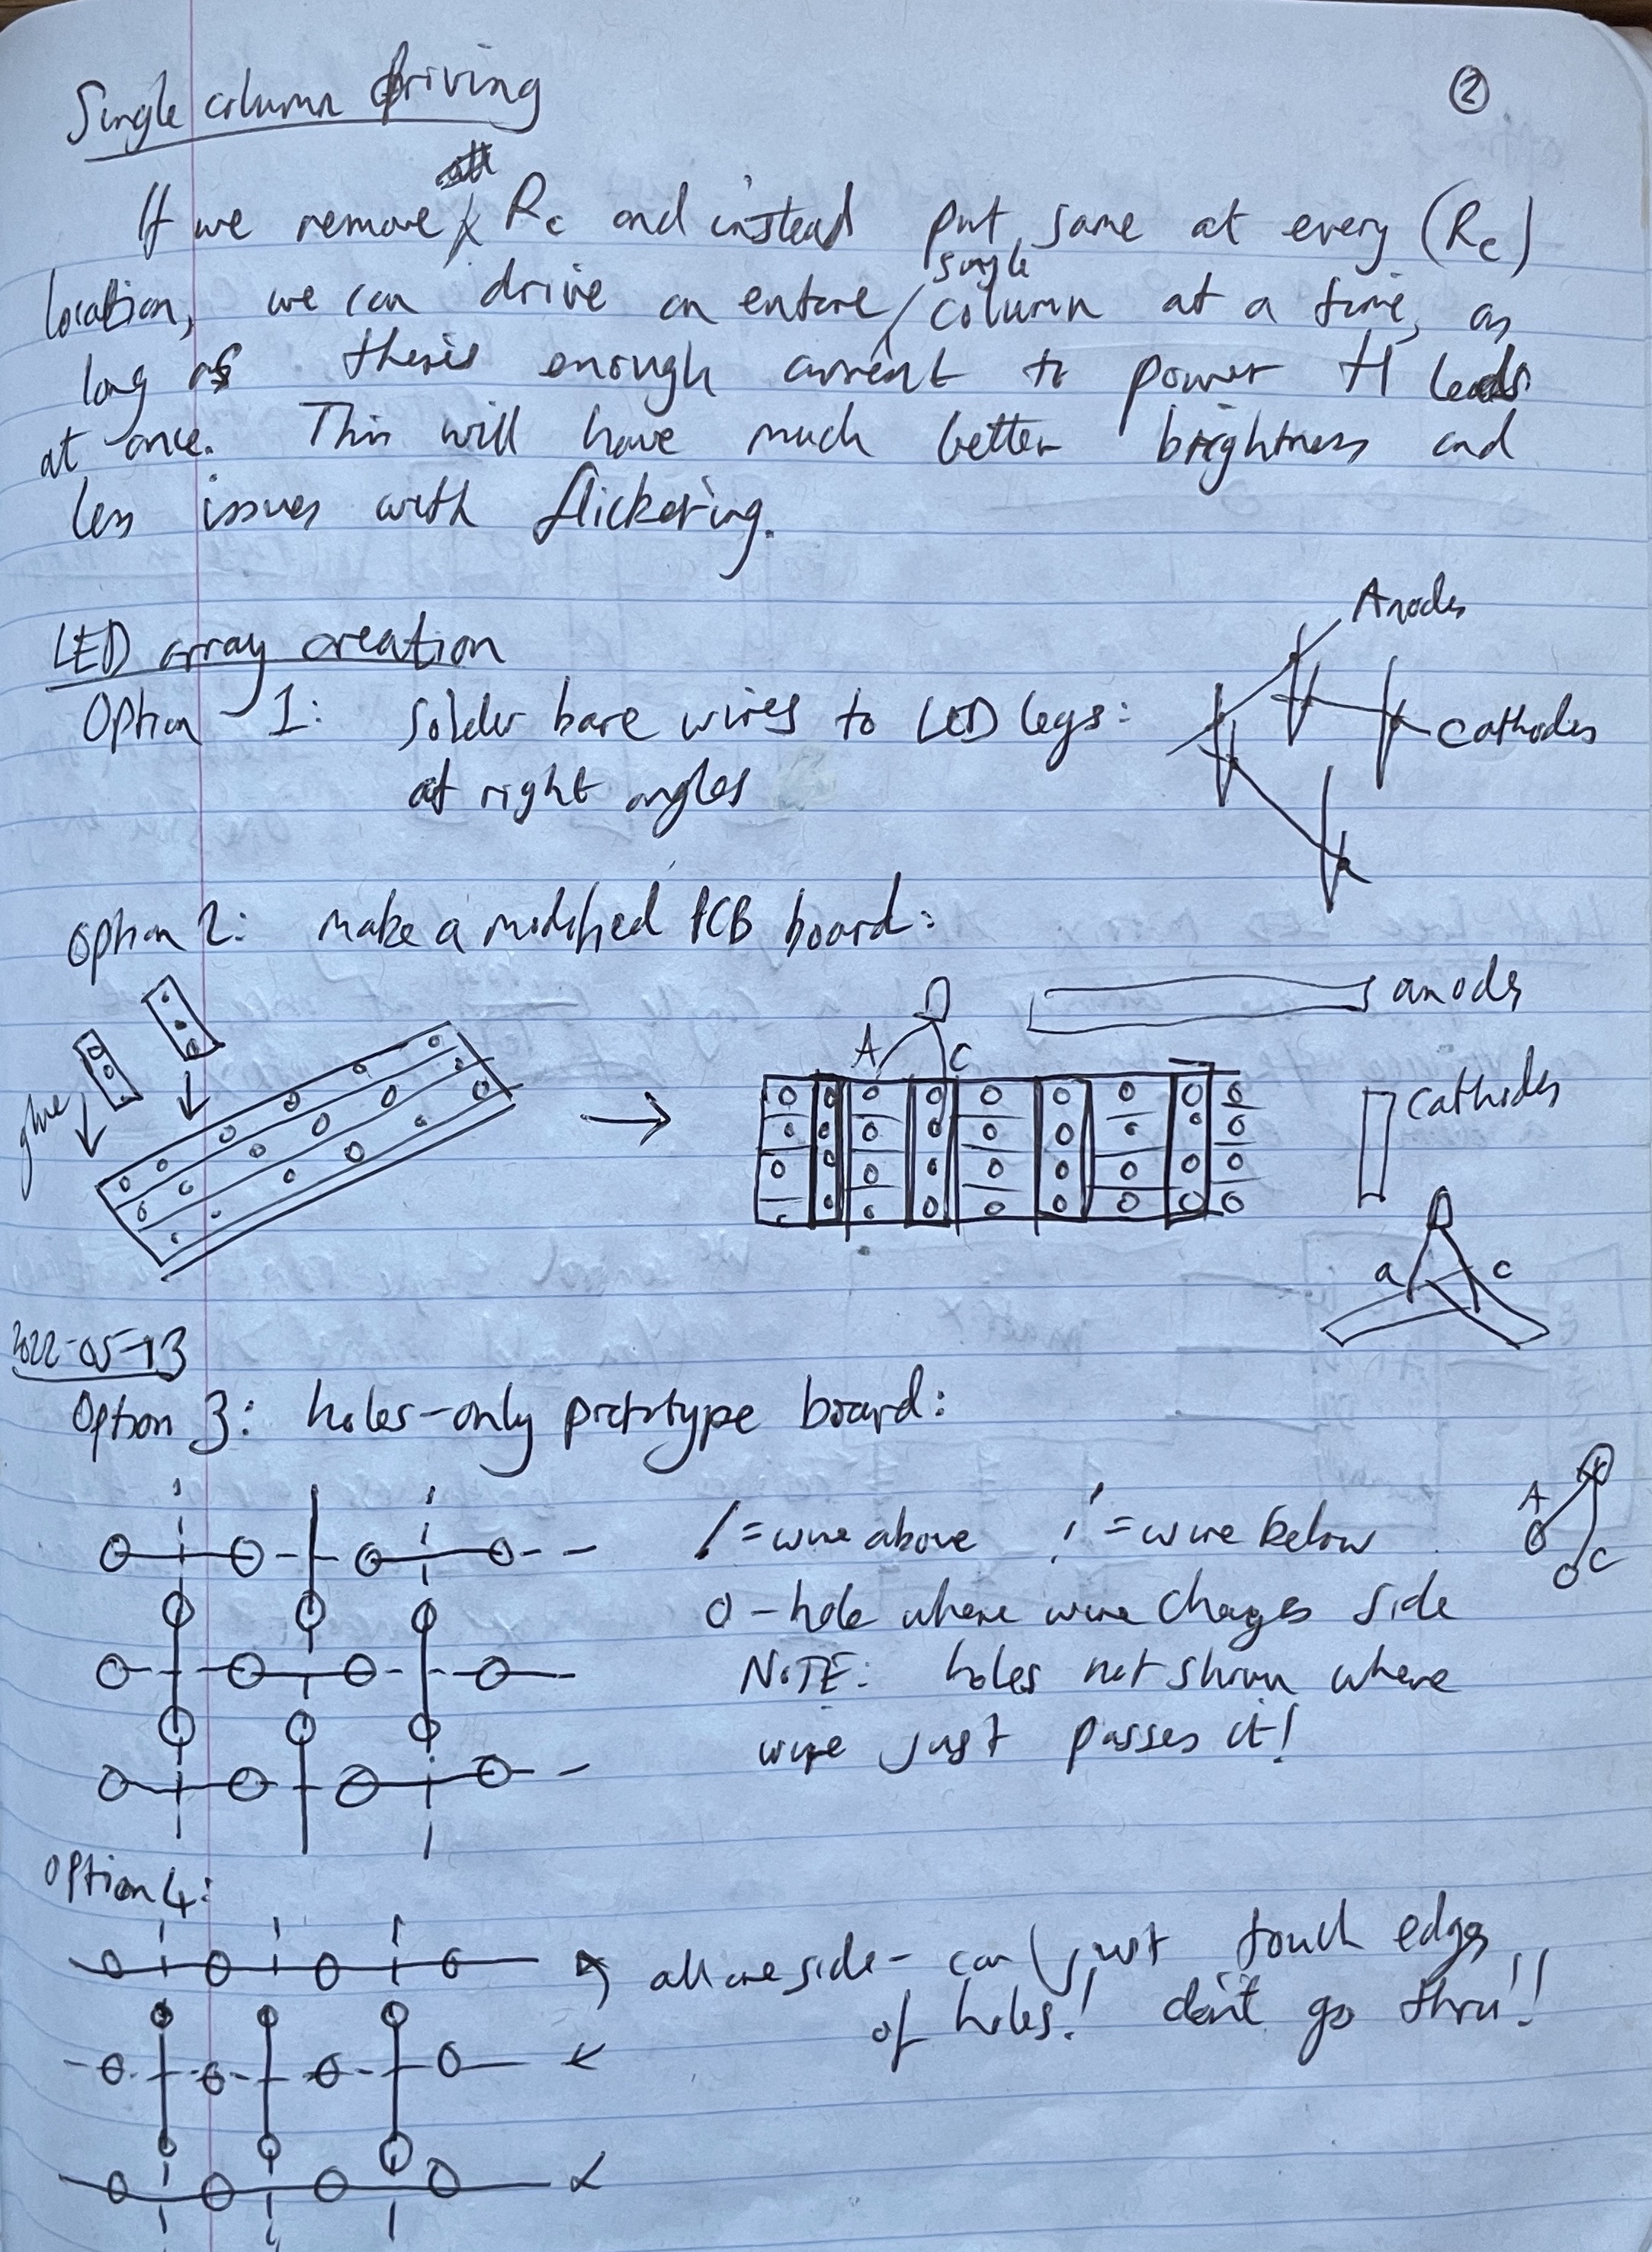 ②
Single column driving
If we remove Rc and instead put same at every (Rc)
location, we can drive an entire single column at a time, as
long as there's enough current to power H leds
at once. This will have much better brightness and
less issues with flickering.
LED array creation
Anodes
Option 1: Solder bare wires to LED legs:
Cathodes
at right angles
Option 2: make a modified PCB board:
anodes
A C
glue
cathodes
a c
2022-05-13
Option 3: holes-only prototype board:
/ = wire above ¦ = wire below
A
C
O - hole where wire changes side
NOTE: holes not shown where
wire just passes it!
Option 4:
all one side - can just touch edges
of holes! don't go thru!!